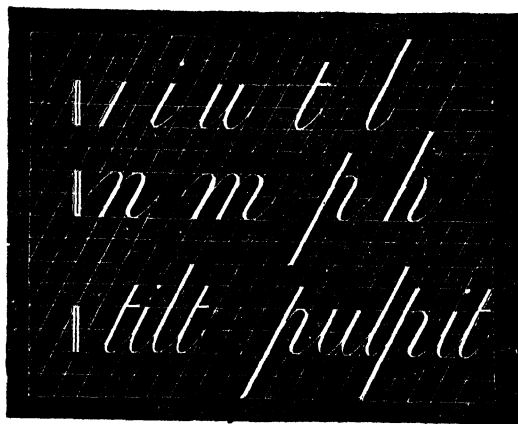 ı i u t l
n m p h
tilt pulpit